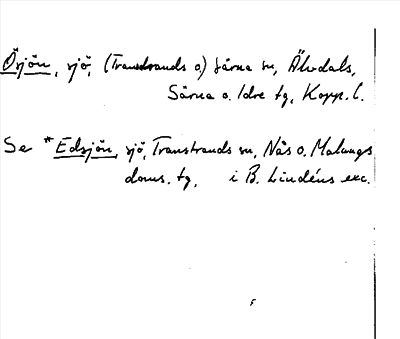 Ösjön, sjö, (Transtrands o) Särna sn, Älvdals,
Särna o. Idre tg, Kopp. l.
Se *Edsjön, sjö, Transtrands sn, Nås o. Malungs
doms. tg, i B. Lindéns exc.